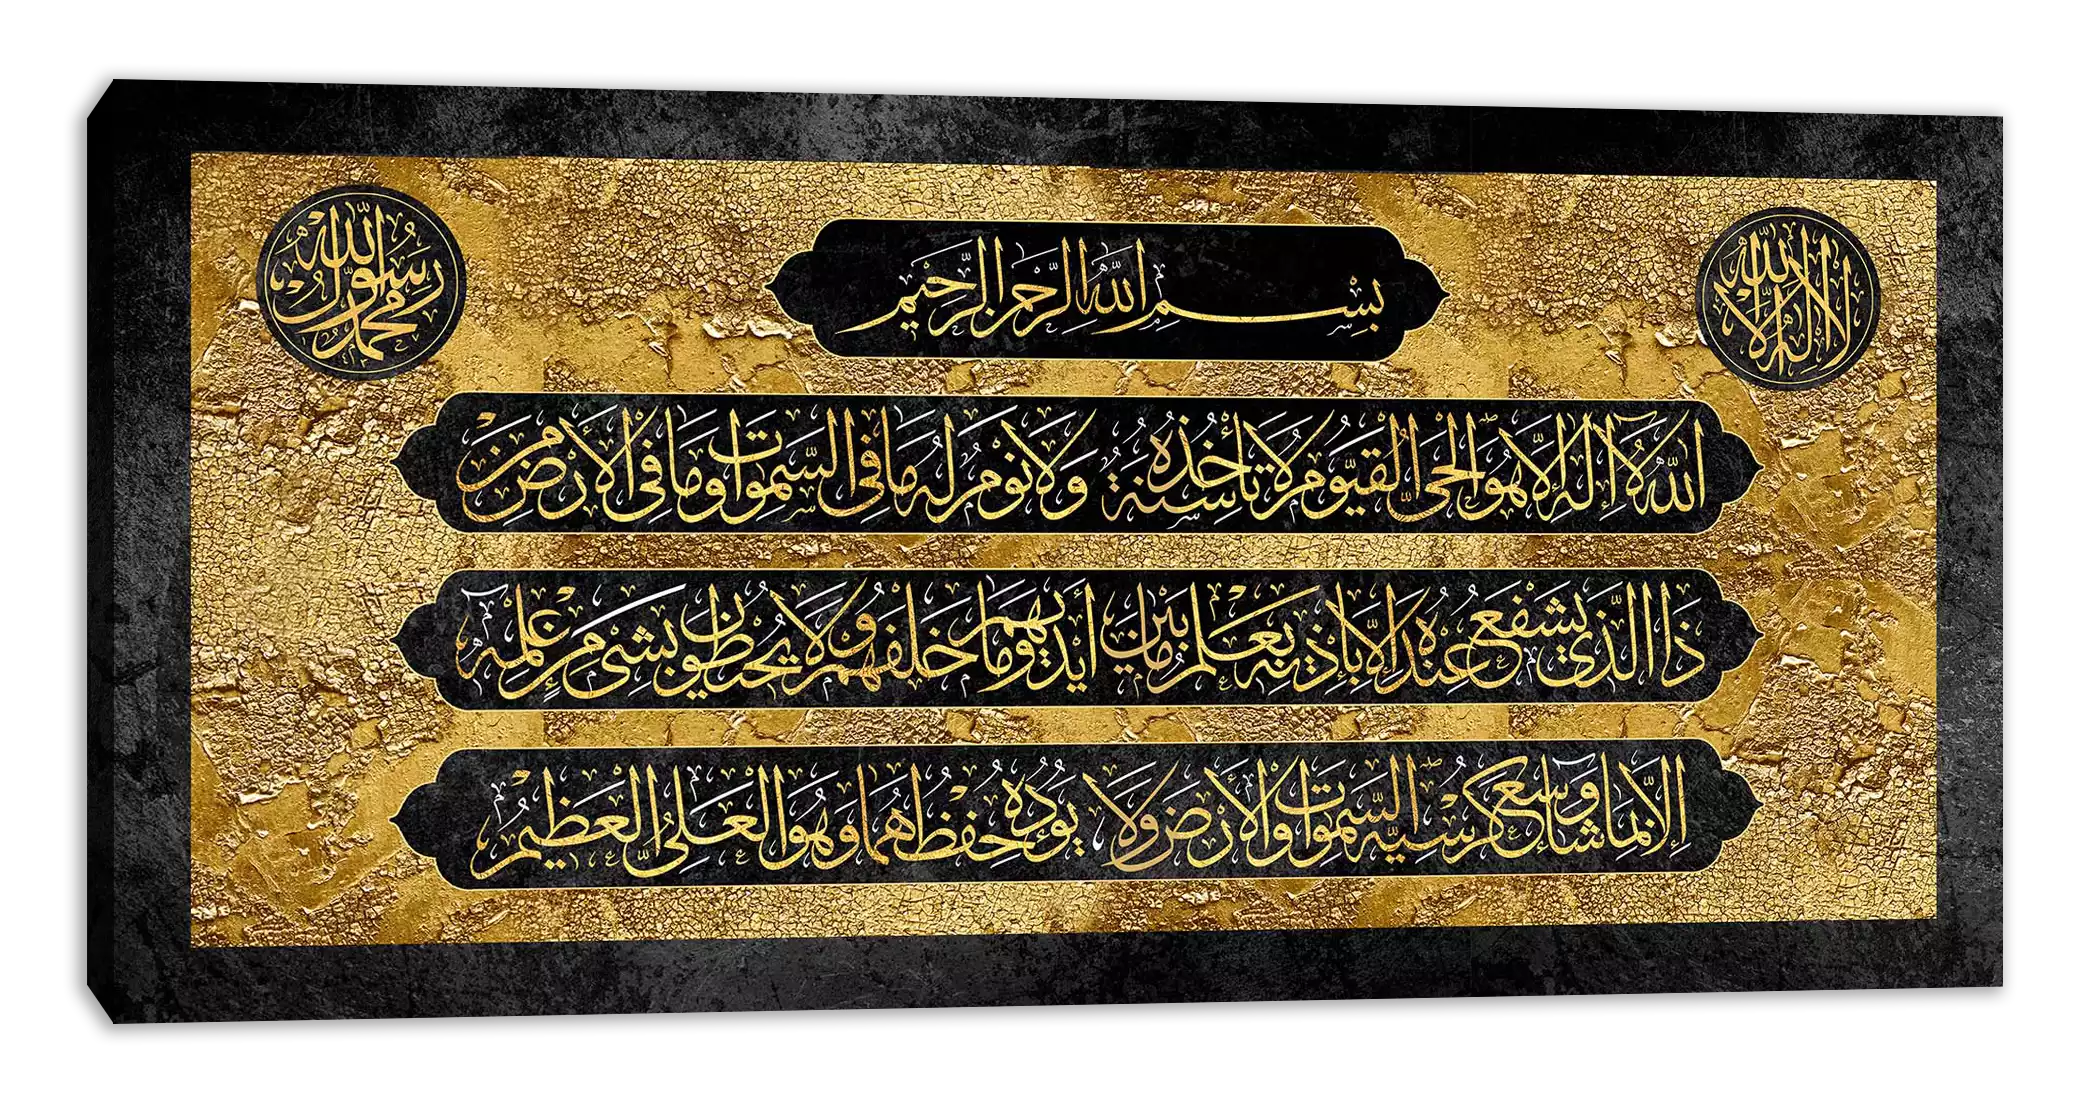 لا اله الا الله
محمد رسول الله
بِسْمِ اللهِ الرَّحْمنِ الرَّحِيمِ
اَللهُ لَا اِلهَ اِلَّا هُوَ الْحَيُّ الْقَيُّومُ لَا تَأْخُذُهُ سِنَةٌ وَلَا نَوْمٌ لَهُ مَا فِي السَّموَاتِ وَمَا فِي الْاَرْضِ مَنْ
ذَا الَّذِي يَشْفَعُ عِنْدَهُ اِلَّا بِاِذْنِهِ يَعْلَمُ مَا بَيْنَ اَيْدِيهِمْ وَمَا خَلْفَهُمْ وَلَا يُحِيطُونَ بِشَيْءٍ مِنْ عِلْمِهِ
اِلَّا بِمَا شَاءَ وَسِعَ كُرْسِيُّهُ السَّموَاتِ وَالْاَرْضَ وَلَا يَؤُدُهُ حِفْظُهُمَا وَهُوَ الْعَلِيُّ الْعَظِيمُ